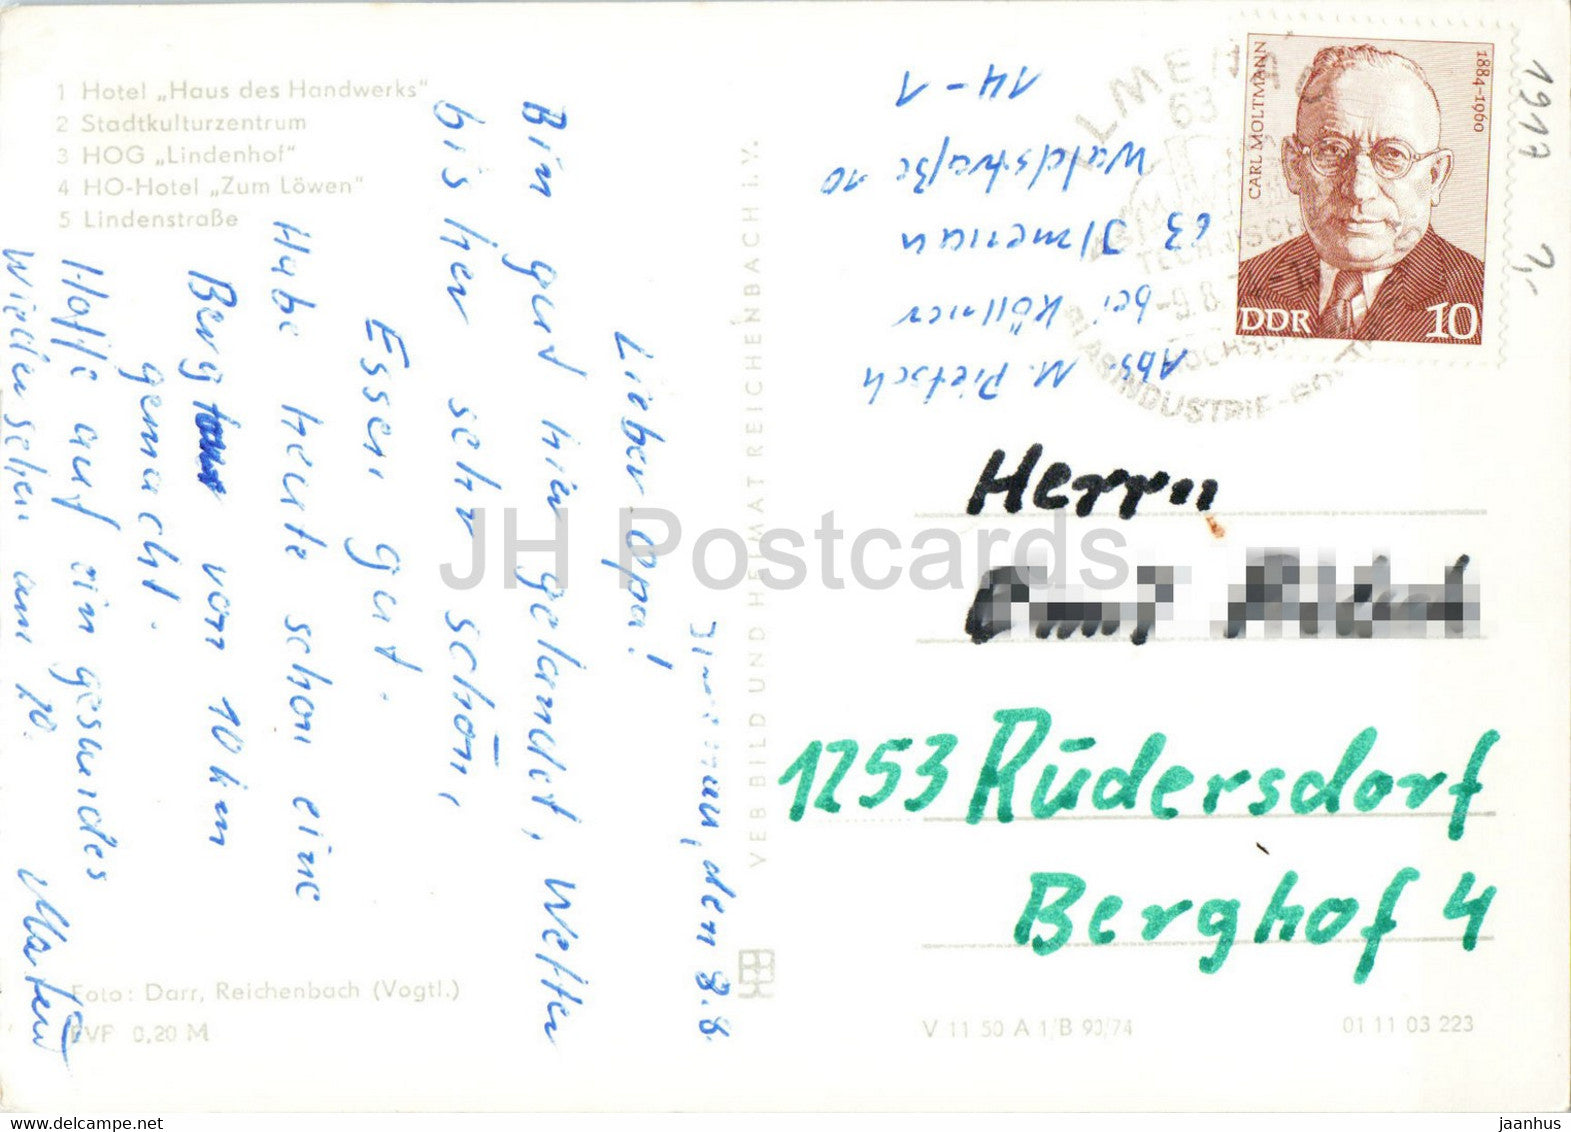 1 Hotel „Haus des Handwerks"
2 Stadtkulturzentrum
3 HOG „Lindenhof"
4 HO-Hotel „Zum Löwen"
5 Lindenstraße
Ilmenau, den 8.8.
Lieber Opa!
Bin gut hier gelandet, Wetter
bisher sehr schön,
Essen gut.
Habe heute schon eine
Berg von 10 km
gemacht.
Hoffe auf ein gesundes
Wiedersehen am 20.
Martin
Foto: Darr, Reichenbach (Vogtl.)
EVP 0,20 M
VEB BILD UND HEIMAT REICHENBACH I. V.
Abs. M. Pietsch
bei Köllner
63 Ilmenau
Waldstraße 10
14-1
ILMENAU
63
TECHNISCHE
-9.8
HOCHSCHULE
GLASINDUSTRIE
CARL MOLTMANN
1884-1960
DDR
10
1977
Herrn
1253 Rüdersdorf
Berghof 4
V 11 50 A 1/B 90/74
01 11 03 223
JH Postcards
www.delcampe.net
jaanhus